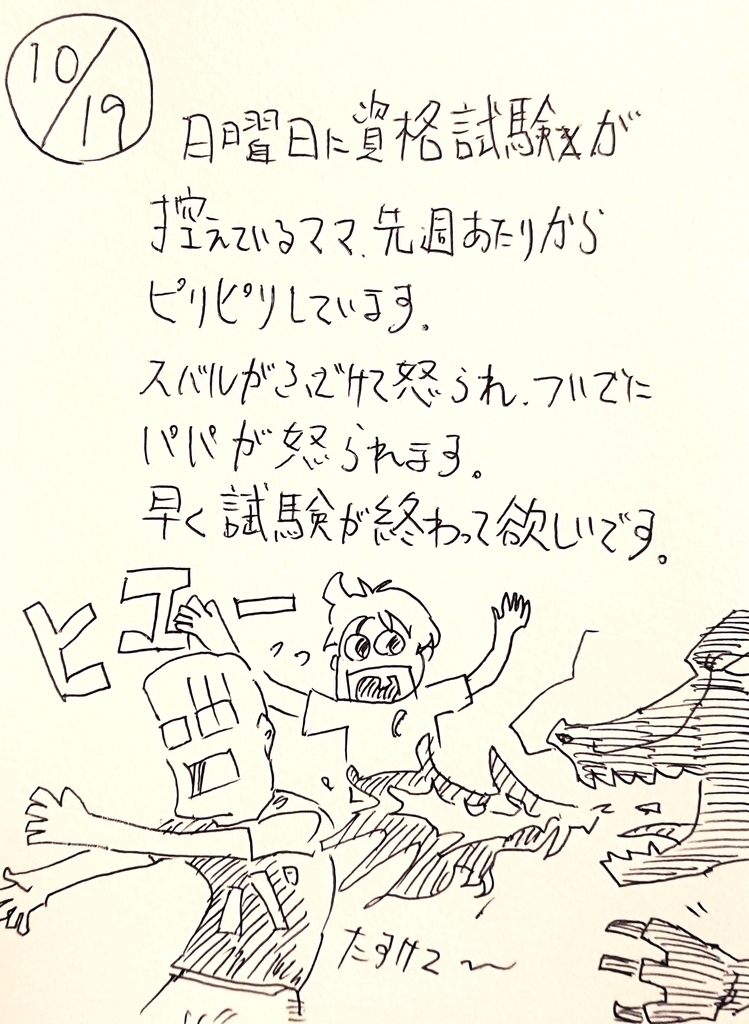 10/19
日曜日に資格試験が
控えているママ、先週あたりから
ピリピリしています。
スバルがふざけて怒られ、ついでに
パパが怒られます。
早く試験が終わって欲しいです。
ヒエー
たすけて〜